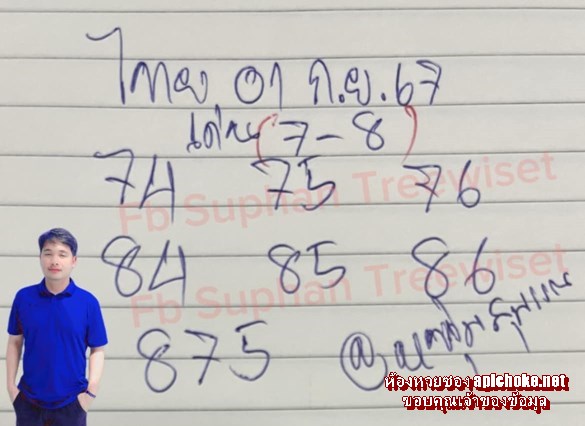 ไทย 01 ก.ย. 67
เด่น (7-8)
74 75 76
Fb Suphan Treewiset
84 85 86
Fb Suphan Treewiset
875
ห้องหวยซอง apichoke.net
ขอบคุณเจ้าของข้อมูล